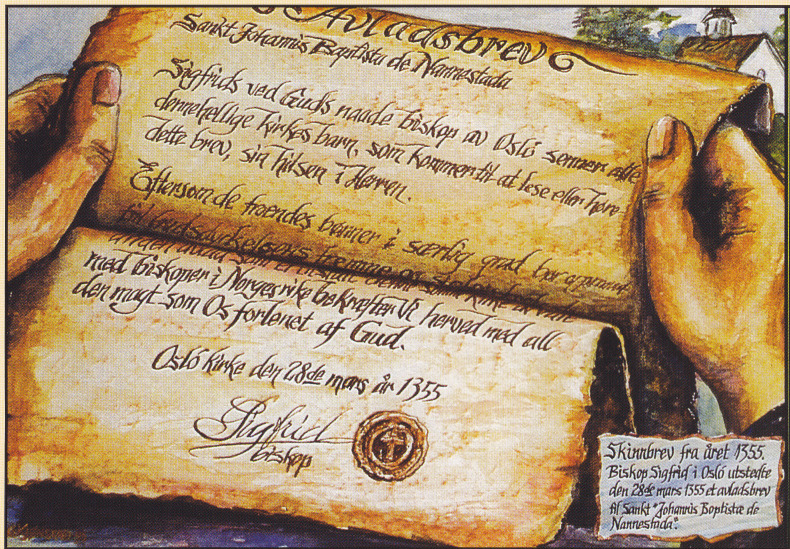 Avladsbrev
Sankt Johannis Baptista de Nannestada
Sigfrids ved Guds naade biskop av Osló senner alle
dennehellige kirkes barn, som kommer til at lese eller høre
dette brev, sin hilsen i Herren.
Eftersom de troendes bønner i særlig grad bør
med biskoper i Norges rike bekræfter Vi herved med all
den magt som Os forlenet af Gud.
Osló kirke den 28de mars år 1355
Sigfrid
biskop
Skinnbrev fra året 1355.
Biskop Sigfrid i Osló utstedte
den 28de mars 1355 et avladsbrev
til Sankt "Johannis Boptistæ de
Nannestada".